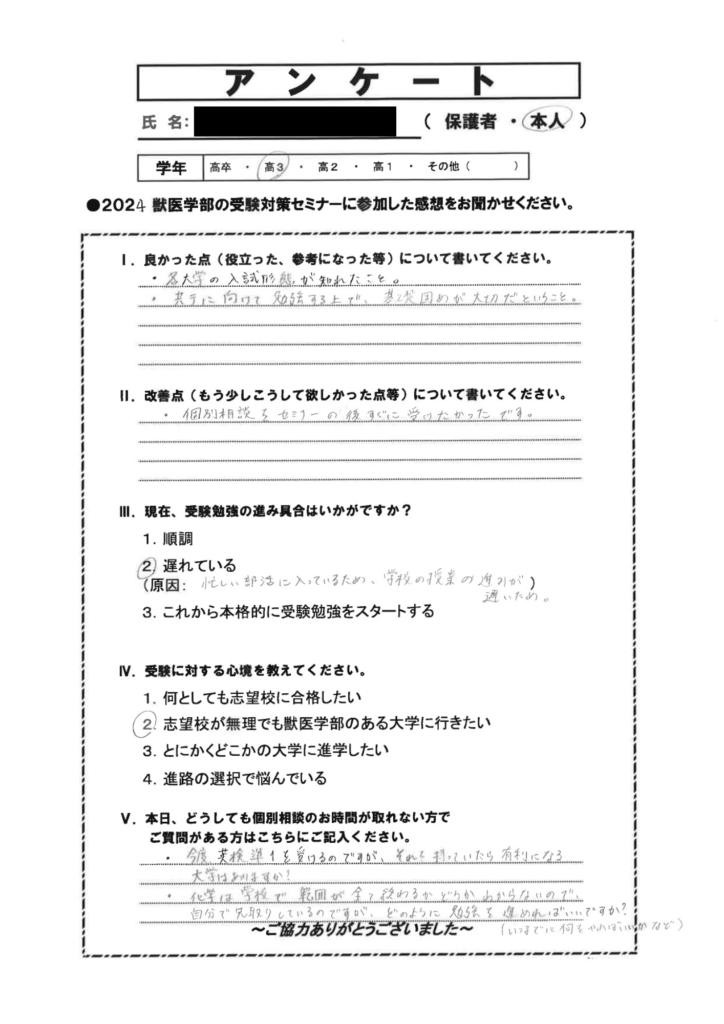 アンケート
氏名: （ 保護者 ・ 本人 ）
学年 高卒 ・ 高3 ・ 高2 ・ 高1 ・ その他（　　　）
●2024 獣医学部の受験対策セミナーに参加した感想をお聞かせください。
Ⅰ. 良かった点（役立った、参考になった等）について書いてください。
・ 各大学の入試形態が知れたこと。
・ 共テに向けて勉強する上で、基礎固めが大切だということ。
Ⅱ. 改善点（もう少しこうして欲しかった点等）について書いてください。
・ 個別相談をセミナーの後すぐに受けたかったです。
Ⅲ. 現在、受験勉強の進み具合はいかがですか？
1. 順調
2. 遅れている
(原因: 忙しい部活に入っているため、学校の授業の進みが )
遅いため。
3. これから本格的に受験勉強をスタートする
Ⅳ. 受験に対する心境を教えてください。
1. 何としても志望校に合格したい
2. 志望校が無理でも獣医学部のある大学に行きたい
3. とにかくどこかの大学に進学したい
4. 進路の選択で悩んでいる
Ⅴ. 本日、どうしても個別相談のお時間が取れない方で
ご質問がある方はこちらにご記入ください。
・ 今度英検準1を受けるのですが、それを持っていたら有利になる
大学はありますか?
・ 化学は学校で範囲が全て終わるかどうかわからないので、
自分で先取りしているのですが、どのように勉強を進めればいいですか?
(いつまでに何をやればいいかなど)
～ご協力ありがとうございました～